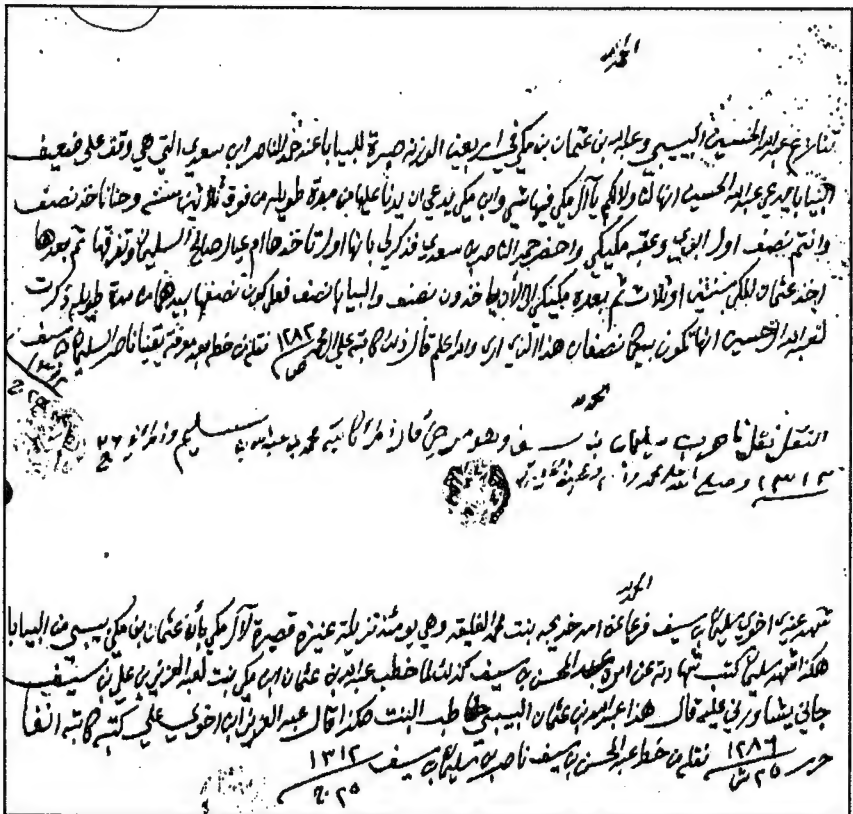 الحمد لله
تنازع عبدالله الحسين البيبي وعبدالله بن عثمان بن مكي في اربعين الوزنه صبرة للبيابا عند حمد الناصر ابن سعدي التي هي وقف على ضعيف
البيابا يدعي عبدالله الحسين انها لنا ولالكم يا آل مكي فيها شي وابن مكي يدعي ان يدنا عليها من مدة طويله من فوق ثلاثين سنة وحنا ناخذ نصف
وانتم نصف اول ابوي وعقبه مكيكي واحضر حمد الناصر بن سعدي فذكر لي بانها اول تاخذها ام عيال صالح السليمان وتفرقها ثم بعدها
اخذ عثمان المكي سنتين او ثلاث ثم بعده مكيكي ياخذون نصف والبيابا نصف فعلى كون نصفها بيدهم من مدة طويله ذكرت
لعبدالله الحسين انها تكون بينكم نصفان هذا الذي ارى والله اعلم قال ذلك كاتبه علي المحمد ١٢٨٢ نقله من خطه بعد معرفته يقينا ناصر السليمان بن سيف
١٣١٢
٢٥
الحمد لله
النقل نقل ناصر بن سليمان بن سيف وهو مرضي قاله كاتبه محمد بن عبدالله بن سليم ٢٦
١٣١٣ وصلى الله على محمد وآله وصحبه وسلم
الحمد لله
شهد عندي اخوي سليمان بن سيف فرعا عن امه خديجه بنت محمد الفليقه وهي يومئذ نزيلة عنيزه قصيرة لآل مكي بأن عثمان بن مكي بيبي من البيابا
هكذا شهد سليمان كتب شهادته عن امره عبد المحسن بن سيف كذلك لما خطب عبدالله بن عثمان ابن مكي بنت لعبد العزيز بن علي بن سيف
جاني يشاورني عليه قال هذا عبدالله بن عثمان البيبي خاطب البنت هكذا قال عبد العزيز ابن اخوي علي كتبه كاتبه انفا
حرر ٢٥ ١٢٨٦ نقله من خط عبد المحسن بن سيف ناصر بن سليمان بن سيف ١٣١٢
٢٥